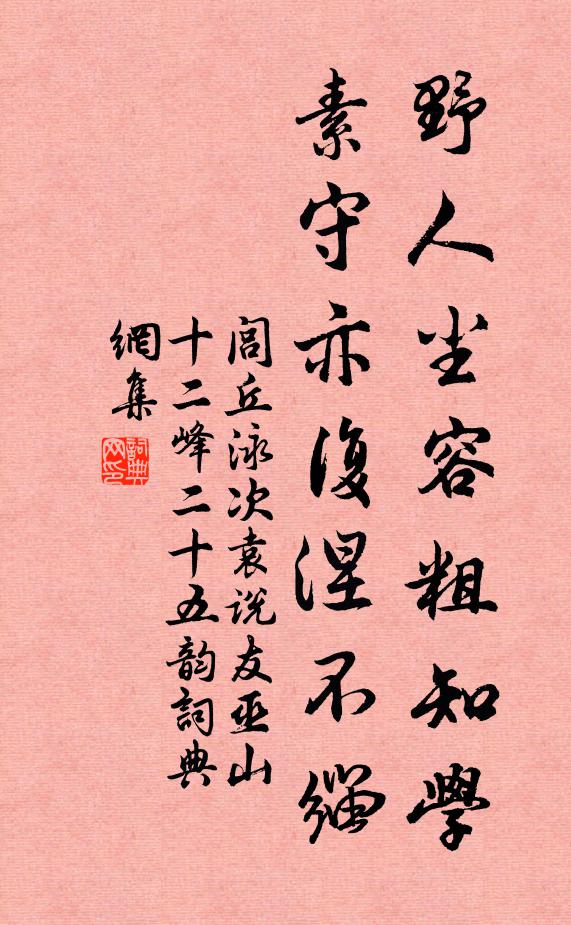 野人尘容粗知學
素守亦復涅不緇
閭丘泳次袁说友巫山
十二峰二十五韵詞典
網集
詞典
网印